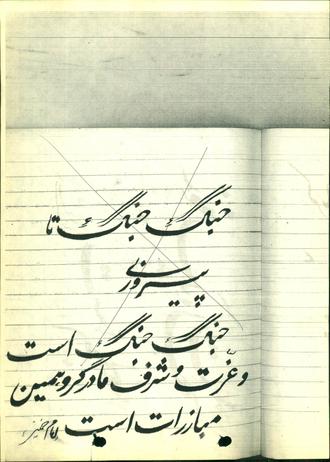 جنگ جنگ تا
پیروزی
جنگ جنگ است
و عزّت و شرف ما در گرو همین
مبارزات است امام خمینی